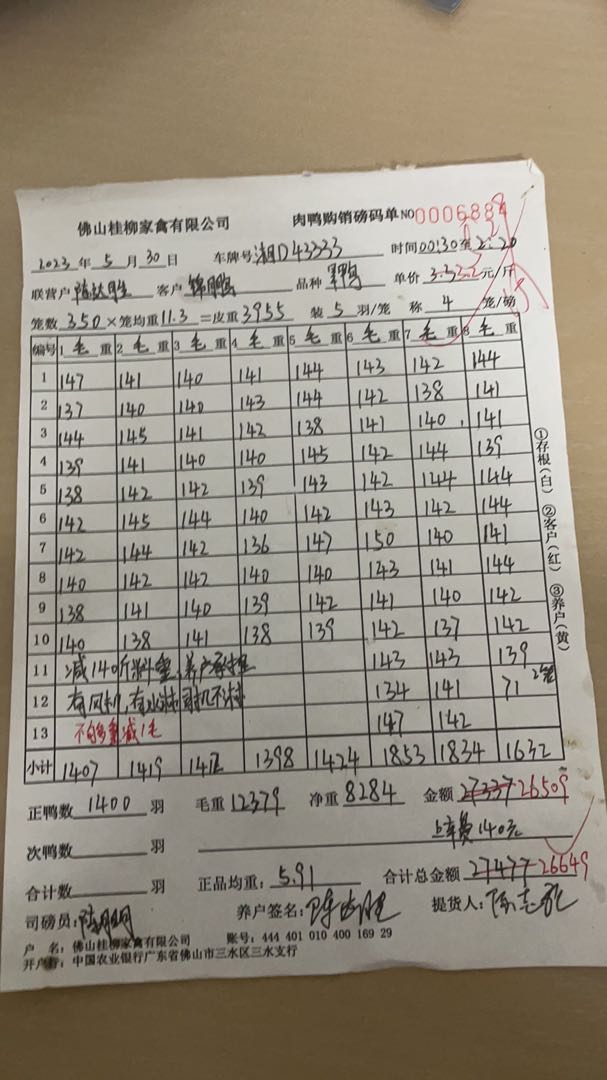 佛山桂柳家禽有限公司 肉鸭购销磅码单 NO 0006884
2023 年 5 月 30 日 车牌号 湘D43333 时间 00:30 至 2:20
联营户 客户 锦鹏 品种 单价 元/斤
笼数 350 × 笼均重 11.3 = 皮重 3955 装 5 羽/笼 称 4 笼/磅
编号 1 毛 重 2 毛 重 3 毛 重 4 毛 重 5 毛 重 6 毛 重 7 毛 重 8 毛 重
1 147 141 140 141 144 143 142 144
2 137 140 140 143 144 142 138 141
3 144 145 141 142 138 141 140 141
4 139 141 140 140 145 142 144 139
5 138 142 142 139 143 142 144 144
6 142 145 144 140 142 143 142 144
7 142 144 142 136 147 150 140 141
8 140 142 142 140 140 143 141 144
9 138 141 140 139 142 141 140 142
10 140 138 141 138 139 142 137 142
11 减140斤料重,养户承担 143 143 139
12 有风机,有水淋 司机不淋 134 141 71 2笼
13 减1毛 147 142
小计 1407 1419 1412 1398 1424 1853 1834 1632
①存根(白) ②客户(红) ③养户(黄)
正鸭数 1400 羽 毛重 12379 净重 8284 金额 27337 26509
次鸭数 羽 上车费140元
合计数 羽 正品均重: 5.91 合计总金额 27477 26649
司磅员: 养户签名: 提货人:
户 名: 佛山桂柳家禽有限公司 账号: 444 401 010 400 169 29
开户行: 中国农业银行广东省佛山市三水区三水支行